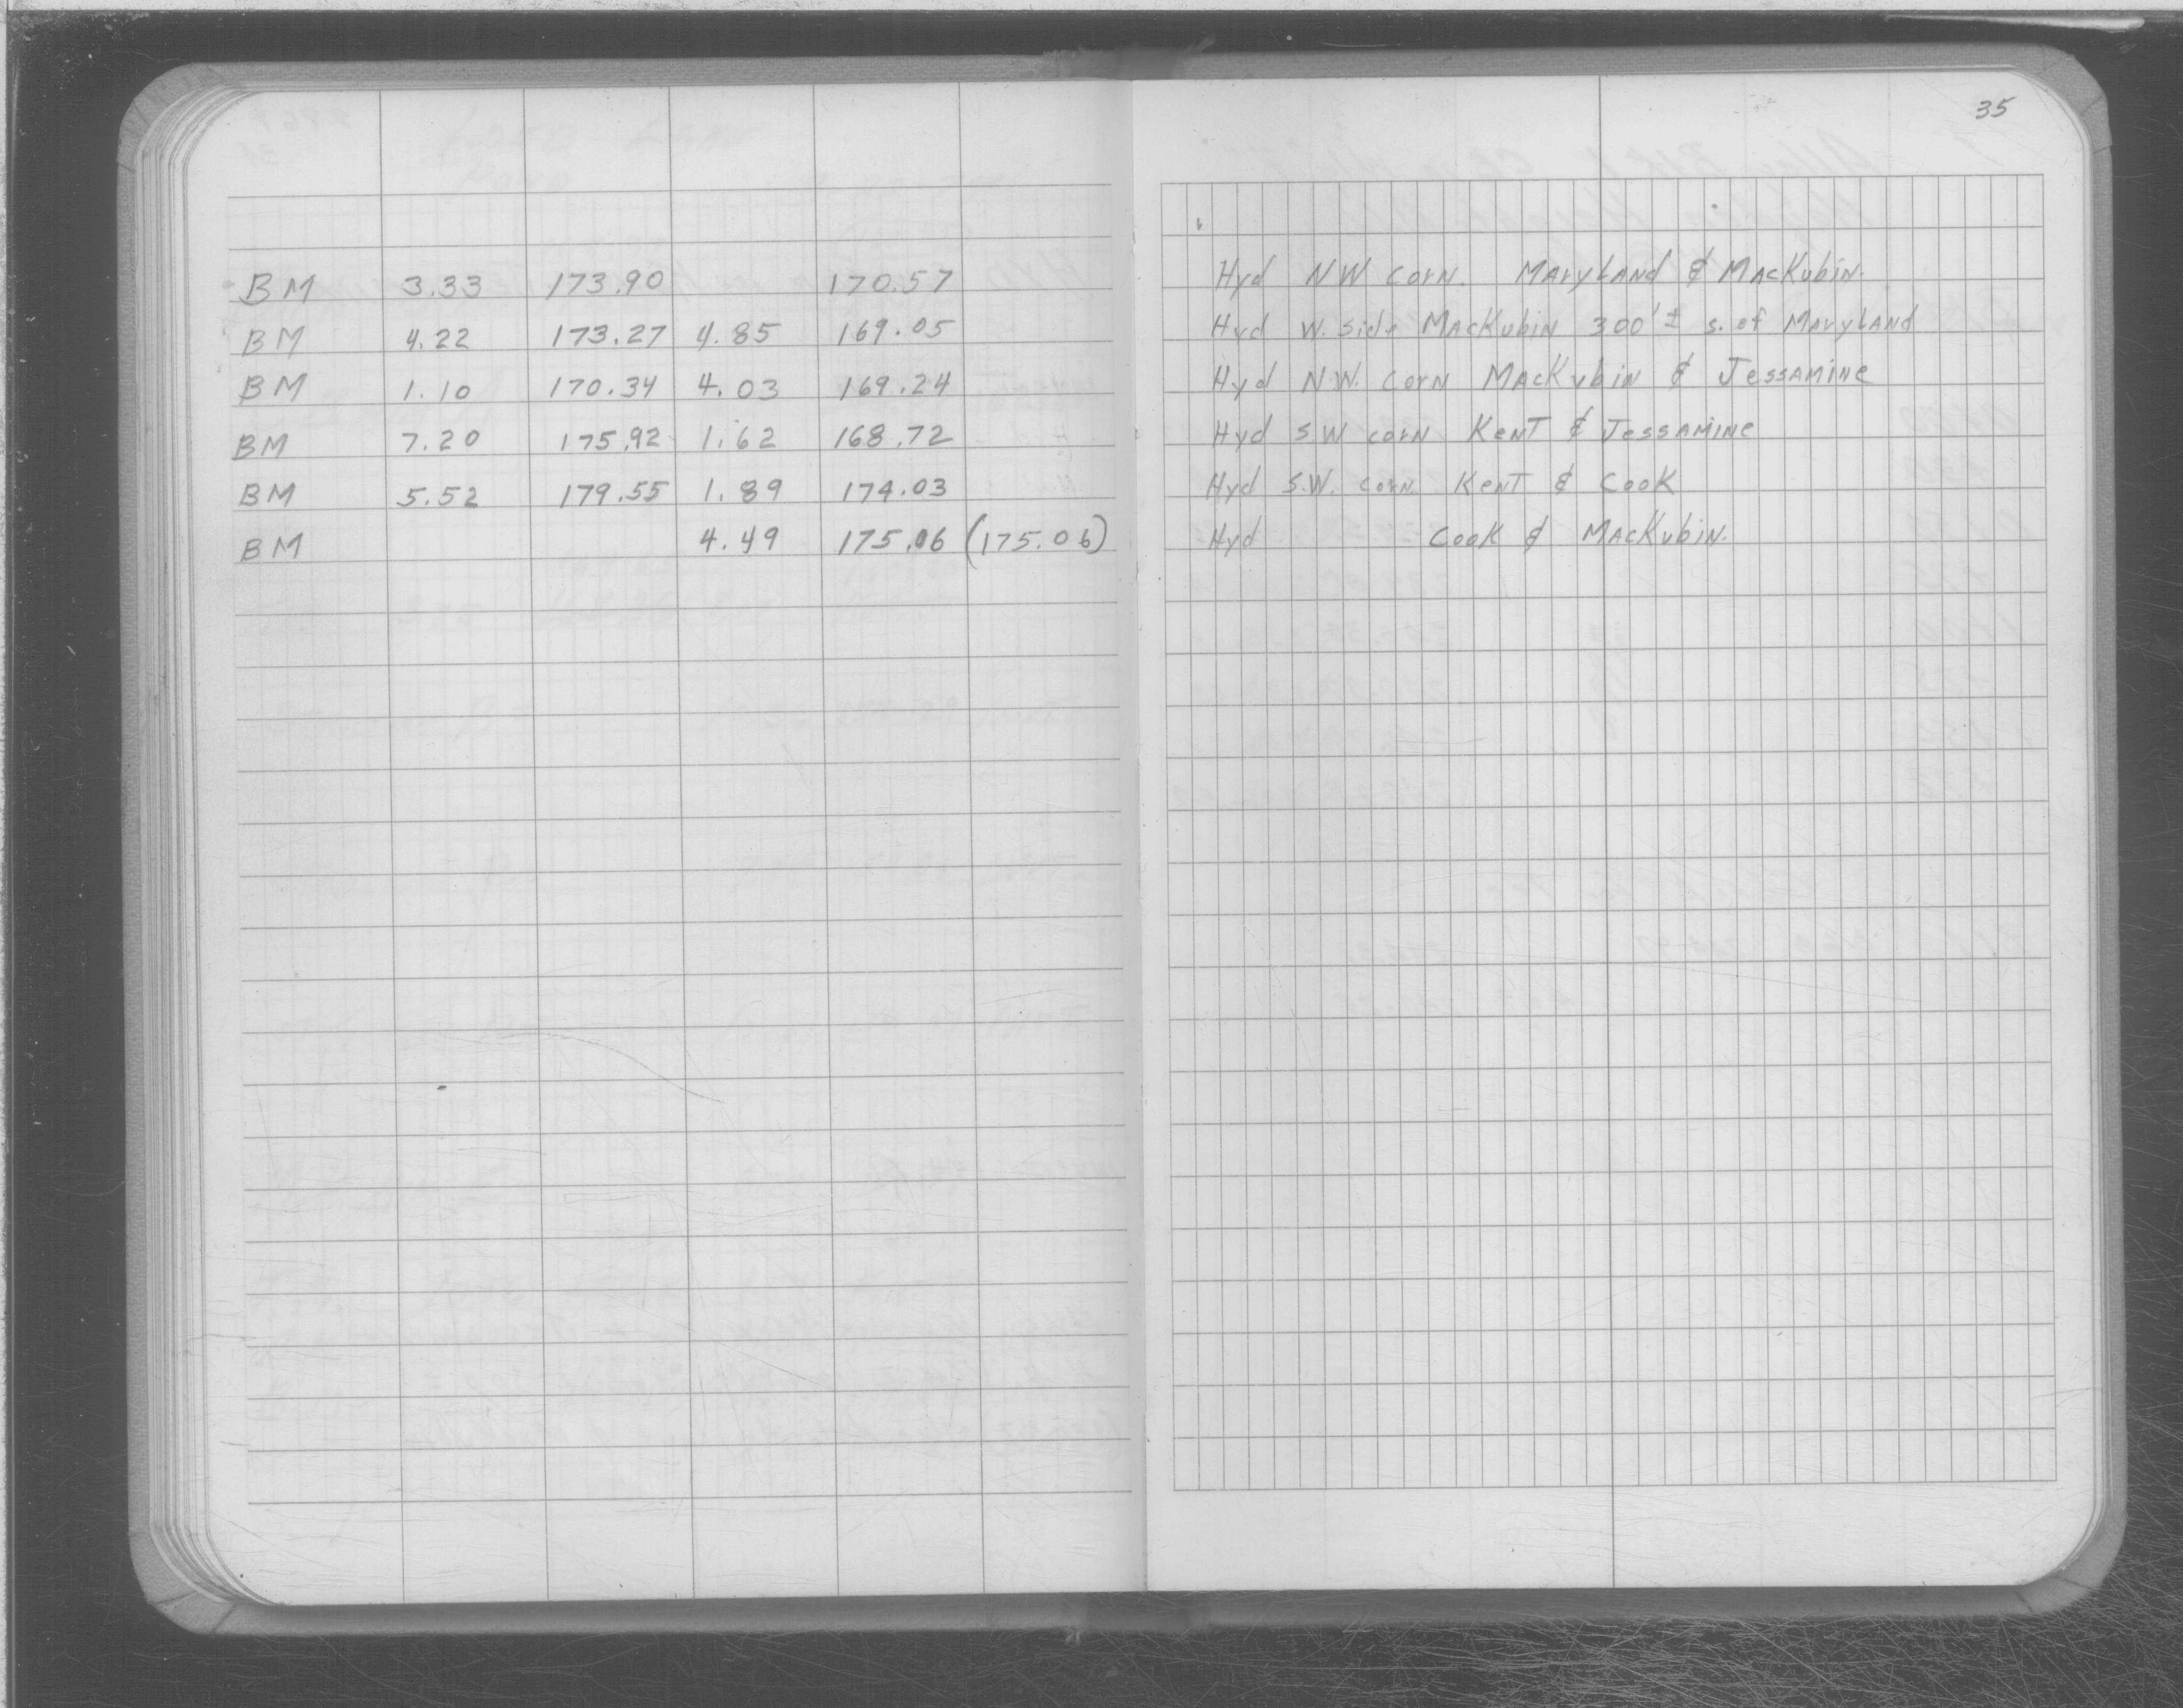 35
BM 3.33 173.90 170.57 Hyd NW Corn. Maryland & Mackubin.
BM 4.22 173.27 4.85 169.05 Hyd W. side Mackubin 300'± s. of Maryland
BM 1.10 170.34 4.03 169.24 Hyd N.W. Corn Mackubin & Jessamine
BM 7.20 175.92 1.62 168.72 Hyd S W corn Kent & Jessamine
BM 5.52 179.55 1.89 174.03 Hyd S.W. corn. Kent & Cook
BM 4.49 175.06 (175.06) Hyd Cook & Mackubin.